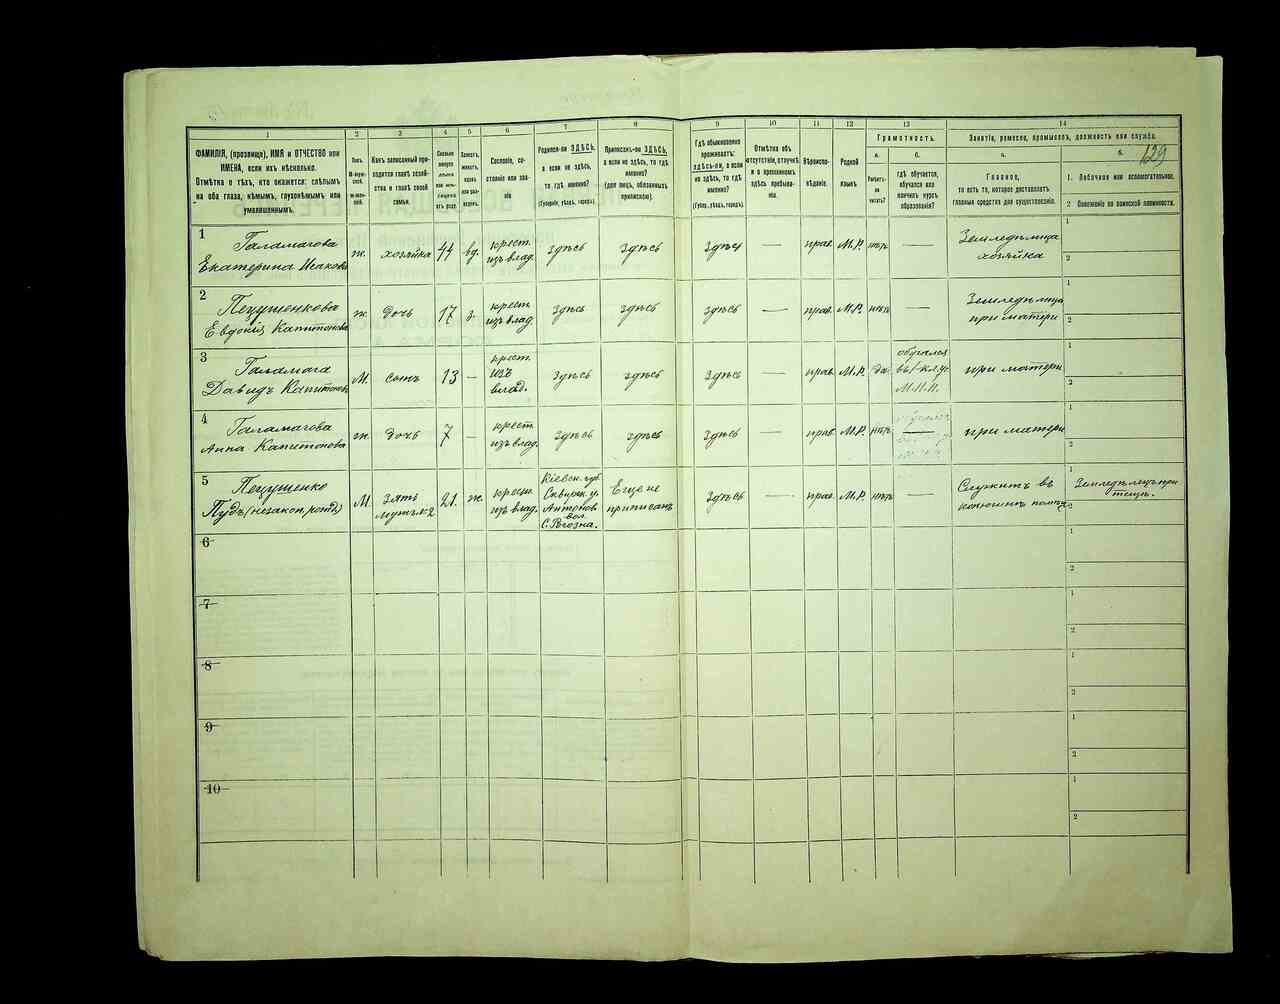 129
1
2
3
4
5
6
7
8
9
10
11
12
13
14
ФАМИЛІЯ, (прозвище), ИМЯ и ОТЧЕСТВО или
ИМЕНА, если ихъ нѣсколько.
Отмѣтка о тѣхъ, кто окажется: слѣпымъ
на оба глаза, нѣмымъ, глухонѣмымъ или
умалишеннымъ.
Полъ.
М-муж-
ской.
Ж-жен-
скій.
Какъ записанный при-
ходится главѣ хозяй-
ства и главѣ своей
семьи.
Сколько
минуло
лѣтъ
Холостъ,
женатъ,
вдовъ
или раз-
веденъ.
Сословіе, со-
стояніе или зва-
ніе
Родился-ли ЗДѢСЬ,
а если не здѣсь,
то гдѣ именно?
(Губернія, уѣздъ, городъ).
Приписанъ-ли ЗДѢСЬ,
а если не здѣсь, то гдѣ
именно?
(для лицъ, обязанныхъ
припискою).
Гдѣ обыкновенно
проживаетъ:
здѣсь-ли, а если
не здѣсь, то гдѣ
именно?
(Губерн., уѣздъ, городъ).
Отмѣтка объ
отсутствіи, отлучкѣ
и о временномъ
здѣсь пребыва-
ніи.
Вѣроиспо-
вѣданіе.
Родной
языкъ
Грамотность.
а.
Умѣетъ-
ли
читать?
б.
гдѣ обучается,
обучался или
кончилъ курсъ
образованія?
Занятіе, ремесло, промыселъ, должность или служба.
а.
Главное,
то есть то, которое доставляетъ
главныя средства для существованія.
б.
1. Побочное или вспомогательное.
2 Положеніе по воинской повинности.
1
Галамагова
Екатерина Исакова
ж.
хозяйка
44
вд.
крест.
изъ влад.
здѣсь
здѣсь
здѣсь
—
прав.
М.Р.
нѣтъ
—
Земледѣлица
хозяйка
1
2
2
Пецушенкова
Евдокія Капитонова
ж.
дочь
17
з.
крест.
изъ влад.
здѣсь
здѣсь
здѣсь
—
прав.
М.Р.
нѣтъ
—
Земледѣлица
при матери
1
2
3
Галамага
Давидъ Капитоновъ
М.
сынъ
13
—
крест.
изъ
влад.
здѣсь
здѣсь
здѣсь
—
прав.
М.Р.
да
обучался
при матери
1
2
4
Галамагова
Анна Капитонова
ж.
дочь
7
—
крест.
изъ влад.
здѣсь
здѣсь
здѣсь
—
прав.
М.Р.
нѣтъ
—
при матери
1
2
5
Пецушенко
Пудъ (незакон. рожд.)
М.
зять
мужъ №2
21.
ж.
крест.
изъ влад.
Кіевск. губ.
Сквирск. у.
Антонов.
вол.
С. Рогозна.
Еще не
приписанъ
здѣсь
—
прав.
М.Р.
нѣтъ
—
Служитъ въ
конюшнѣ помѣщ.
1
Земледѣлецъ при
тещѣ.
2
6
1
2
7
1
2
8
1
2
9
1
2
10
1
2